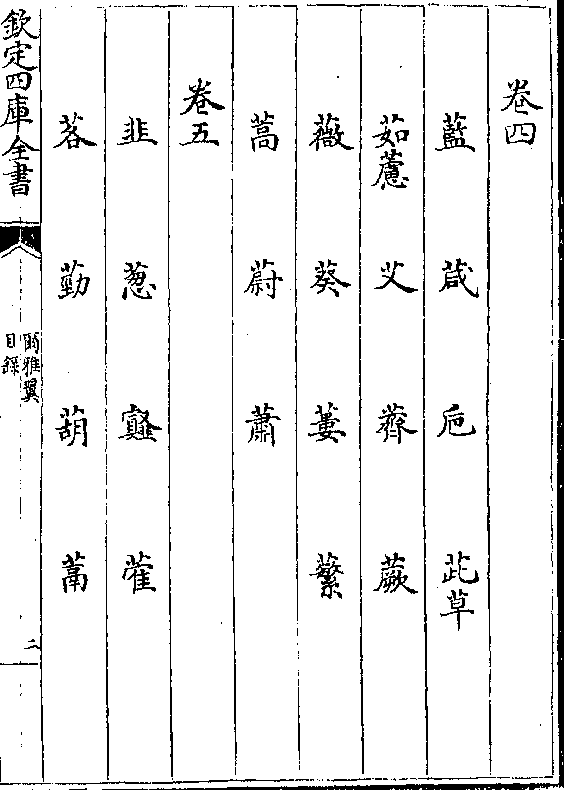 卷四
藍 葴 巵 茈草
茹藘 艾 薺 蕨
薇 葵 蔞 蘩
蒿 蔚 蕭
卷五
韭 葱 䪥 蒮
茖 葝 葫 蒚
欽定四庫全書
爾雅翼
目録
二